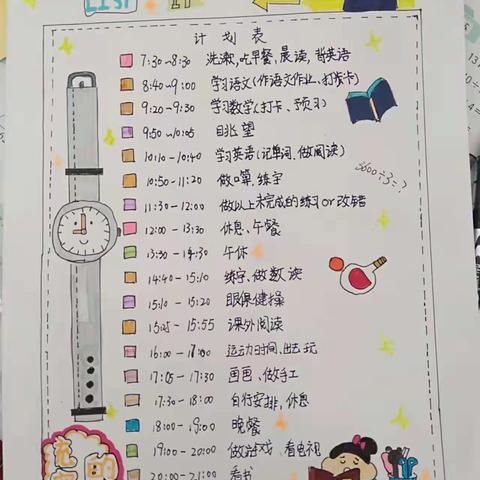 LIST
计划表
7:30-8:30 洗漱,吃早餐,晨读,背英语
8:40-9:00 学习语文(作语文作业,打卡)
9:20-9:30 学习数学(打卡、预习)
9:50-10:05 眺望
10:10-10:40 学习英语(记单词、做阅读)
10:50-11:20 做口算,练字
11:30-12:00 做以上未完成的练习or改错
12:00-13:30 休息、午餐
13:30-14:30 午休
14:40-15:10 练字、做数读
15:10-15:20 眼保健操
15:25-15:55 课外阅读
16:00-17:00 运动时间、出去玩
17:05-17:30 画画、做手工
17:30-18:00 自行安排,休息
18:00-19:00 晚餐
19:00-20:00 做游戏、看电视
20:00-21:00 看书
5600÷3=?
的